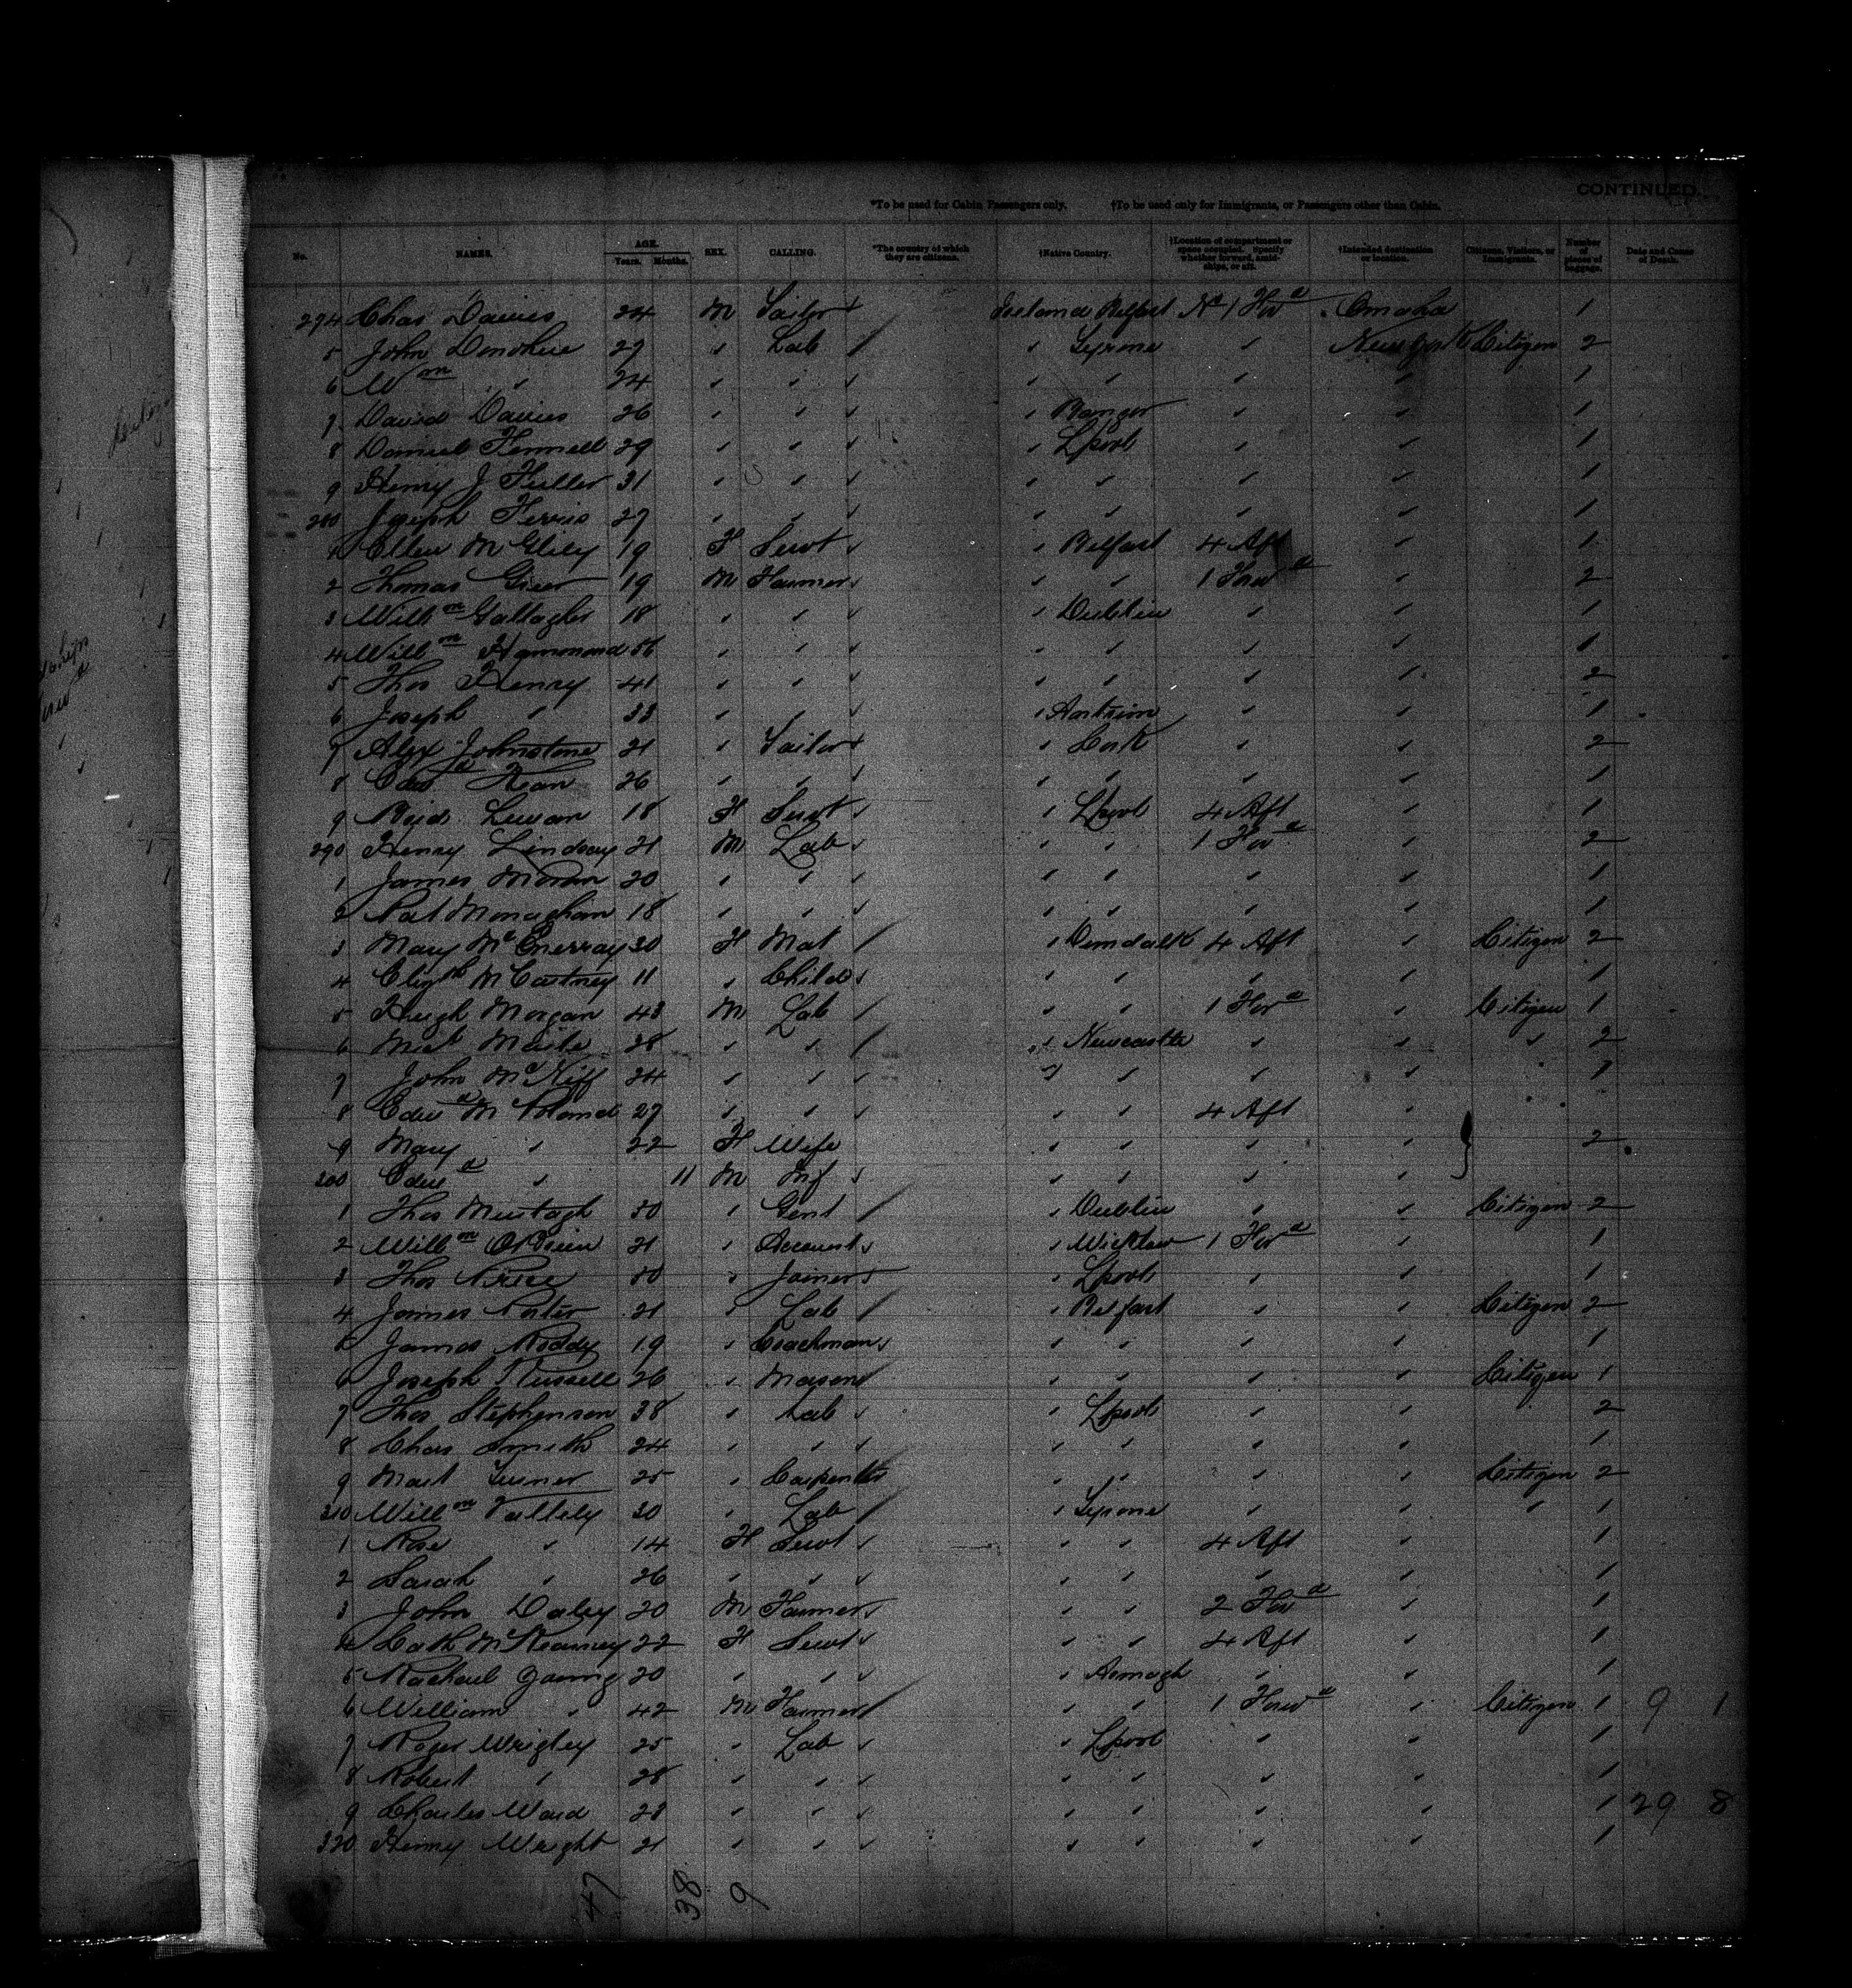 CONTINUED.
*To be used for Cabin Passengers only. †To be used only for Immigrants, or Passengers other than Cabin.
No. NAMES. AGE. Years. Months. SEX. CALLING. *The country of which they are citizens. †Native Country. †Location of compartment or space occupied. Specify whether forward, amidships, or aft. †Intended destination or location. Citizens, Visitors, or Immigrants. Number of pieces of baggage. Date and Cause of Death.
274 Chas Davies 24 M Tailor Ireland Belfast No 1 Ford Omaha 1
5 John Donohue 27 " Lab " Tyrone " New York Citizen 2
6 Wm " 24 " " " " " " 1
7 David Davies 26 " " " Bangor " " 1
8 Daniel Fennell 29 " " " Lpool " " 1
9 Henry J Fuller 31 " " " " " " 1
280 Joseph Ferris 27 " " " " " " 1
1 Ellen 19 F Servt " Belfast 4 Aft " 1
2 Thomas Greer 19 M Farmer " " 1 Forwd " 2
3 Willm Gallagher 18 " " " Dublin " " 1
4 Willm Hammond 56 " " " " " " 1
5 Thos Henry 41 " " " " " " 2
6 Joseph " 33 " " " Antrim " " 1
7 Alex Johnstone 21 " Tailor " Cork " " 2
8 Edwd Kean 26 " " " " " " 1
9 18 F Servt " Lpool 4 Aft " 1
290 Henry Lindsay 21 M Lab " " 1 Ford " 2
1 James Moran 20 " " " " " " 1
2 Pat Monaghan 18 " " " " " " 1
3 Mary 30 F Mat " Dundalk 4 Aft " Citizen 2
4 Elizth McCartney 11 " Child " " " " 1
5 Hugh Morgan 43 M Lab " " 1 Ford " Citizen 1
6 28 " " " Newcastle " " " 2
7 John McKiff 24 " " " " " " 1
8 Edwd 27 " " " " 4 Aft "
9 Mary " 22 F Wife " " " " 2
300 Edwd " 11 M Inf " " " "
1 Thos Murtagh 50 " Gent " Dublin " " Citizen 2
2 Willm O'Brien 21 " Account " Wicklow 1 Ford " 1
3 Thos Price 50 " Joiner " Lpool " " 1
4 James Porter 21 " Lab " Belfast " " Citizen 2
5 James Roddy 19 " Coachman " " " " 1
6 Joseph Russell 26 " Mason " " " " Citizen 1
7 Thos Stephenson 38 " Lab " Lpool " " 2
8 Chas Smith 24 " " " " " " 1
9 Mart Turner 25 " Carpenter " " " " Citizen 2
310 Willm Vallely 30 " Lab " Tyrone " " " 1
1 Rose " 14 F Servt " " 4 Aft " 1
2 Sarah " 26 " " " " " " 1
3 John Daley 20 M Farmer " " 2 Ford " 1
4 Cath McKearney 22 F Servt " " 4 Aft " 1
5 Rachael Young 20 " " " Armagh " " 1
6 William " 42 M Farmer " " 1 Forwd " Citizen 1 9 1
7 Roger Wrigley 25 " Lab " Lpool " " 1
8 Robert " 28 " " " " " " 1
9 Charles Ward 23 " " " " " " 1 29 8
320 Henry Wright 21 " " " " " " 1
47 38 9